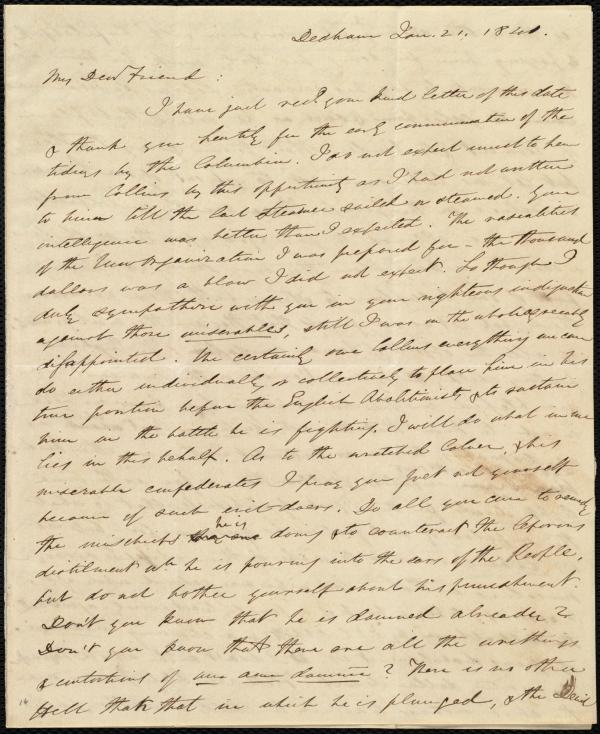 Dedham Jan. 21. 1841.
My Dear Friend:
I have just recd your kind letter of this date
& thank you heartily for the early communication of the
tidings by the Columbia. I do not expect much to hear
from Collins by this opportunity as I had not written
to him till the last Steamer sailed or steamed. Your
intelligence was better than I expected. The rascalities
of the New Organization I was prepared for – the thousand
dollars was a blow I did not expect. So though I
duly sympathise with you in your righteous indignation
against those miserables, still I was on the whole agreeably
disappointed. We certainly owe Collins everything we can
do either individually or collectively to place him in his
true position before the English Abolitionists & to sustain
him in the battle he is fighting. I will do what in me
lies in this behalf. As to the wretched Colver, & his
miserable confederates I pray you fret not yourself
because of such evil doers. Do all you can to remedy
the mischiefs he is doing & to counteract the leperous
distilment wh he is pouring into the ears of the People,
but do not bother yourself about his punishment.
Don't you know that he is damned already?
Don't you know that there are all the writhings
& contortions of une ame damnée? There is no other
Hell than that in which he is plunged, & the Devil
16